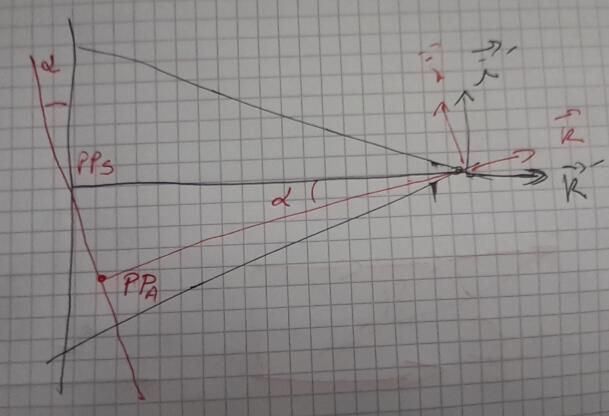 α
PPS
α
PPA
i
i'
k
k'